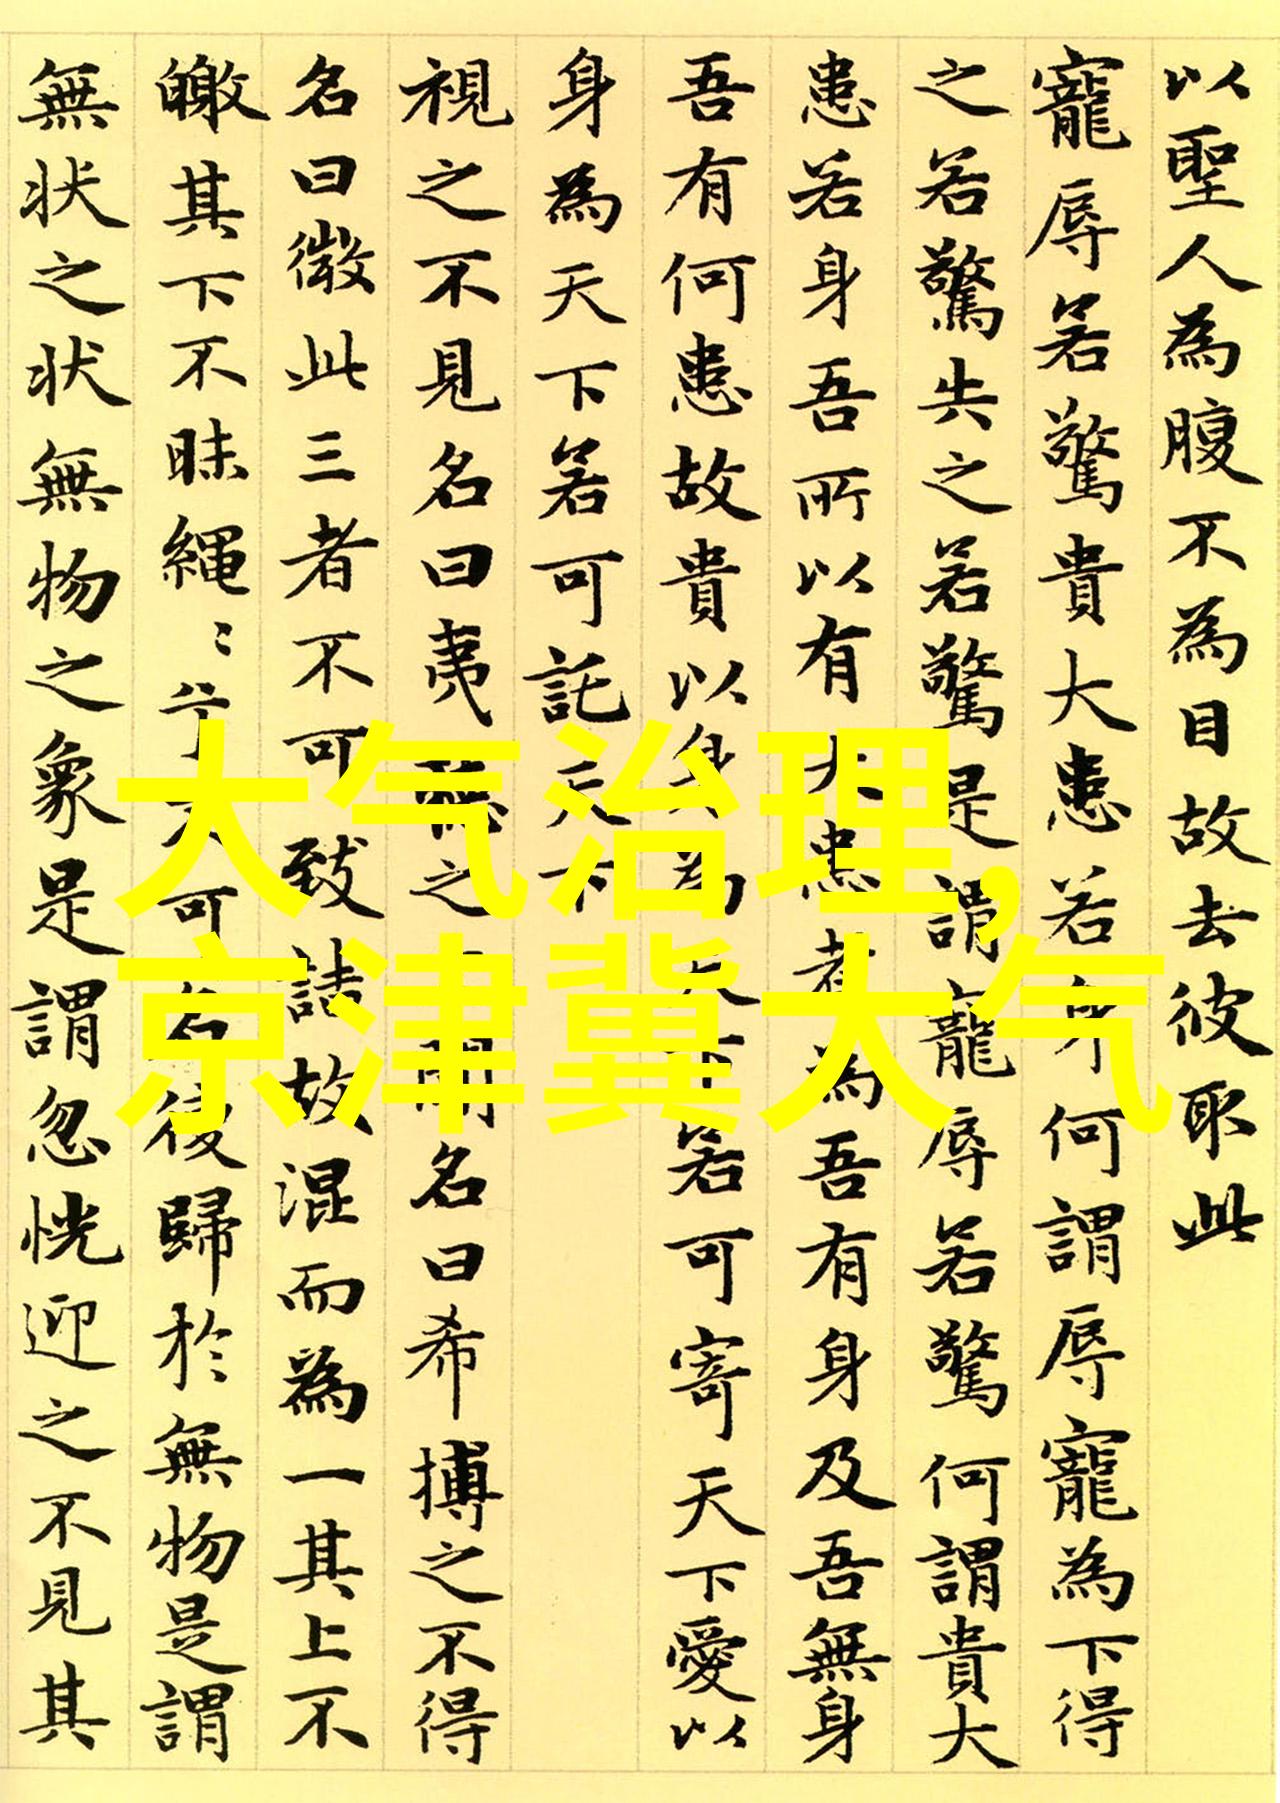 以聖人為腹不為目故去彼取此
寵辱若驚貴大患若身何謂辱寵為下得
之若驚失之若驚是謂寵辱若驚何謂貴大
患若身吾所以有大患者為吾有身及吾無身
吾有何患故貴以身為天下若可寄天下愛以
身為天下若可託天下
視之不見名曰夷聽之不聞名曰希搏之不得
名曰微此三者不可致詰故混而為一其上不
皦其下不昧繩〻兮不可名復歸於無物是謂
無状之状無物之象是謂忽恍迎之不見其
大气治理,
京津冀大气